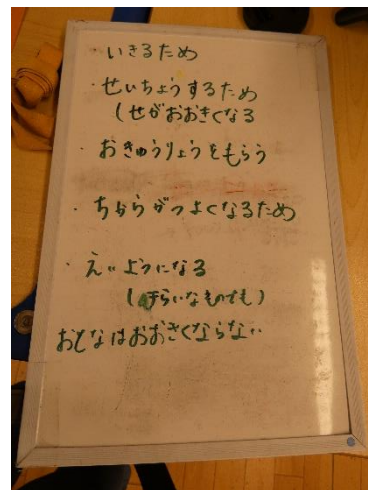 ・いきるため
・せいちょうするため
（せがおおきくなる
・おきゅうりょうをもらう
・ちからがつよくなるため
・えいようになる
（きらいなものでも）
おとなはおおきくならない